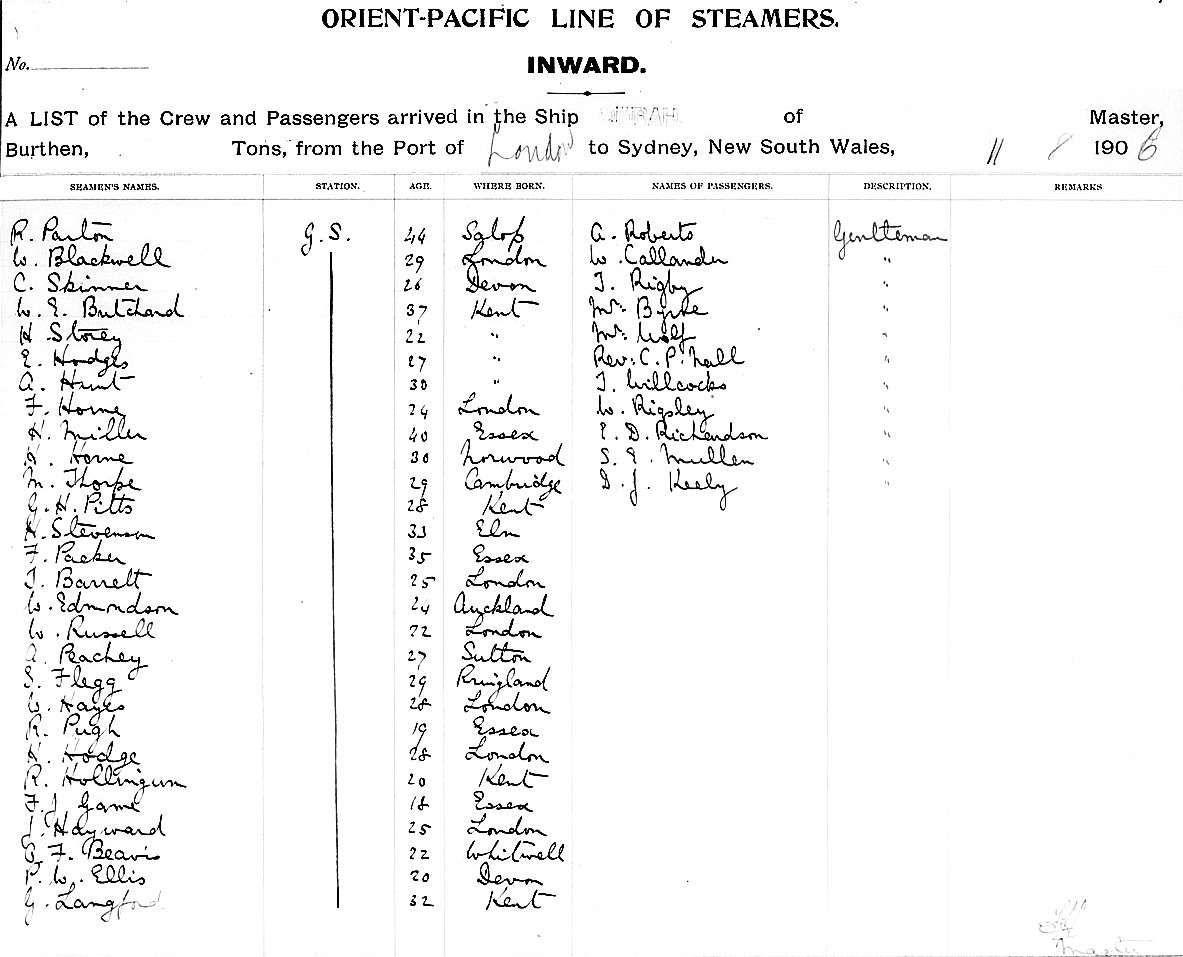 ORIENT-PACIFIC LINE OF STEAMERS.
No.
INWARD.
A LIST of the Crew and Passengers arrived in the Ship of Master,
Burthen, Tons, from the Port of London to Sydney, New South Wales, 11 8 1906
SEAMEN'S NAMES. STATION. AGE. WHERE BORN. NAMES OF PASSENGERS. DESCRIPTION. REMARKS
R. Parton G.S. 44 Salop A. Roberts Genlteman
W. Blackwell 29 London W. Callander "
C. Skinner 26 Devon T. Rigby "
W. E. Butchard 37 Kent Mr. Byrke "
H Storey 22 " Mr. Wolf "
E. Hodges 27 " Rev. C. P. Nall "
A. Hunt 30 " T. Willcocks "
F. Horne 24 London W. Rigsley "
H. Miller 40 Essex E. D. Richendson "
H. Horne 30 Norwood S. E. Mullen "
M. Thorpe 29 Cambridge D. J. Keely "
G. H. Pitts 28 Kent
H. Stevenson 33 Elm
F. Packer 35 Essex
J. Barrett 25 London
W. Edmondson 24 Auckland
W. Russell 22 London
A. Peachey 27 Sutton
S. Flegg 29 Kringland
W. Hayes 28 London
R. Pugh 19 Essex
H. Hodge 28 London
R. Hollingum 20 Kent
F. J. Game 18 Essex
J. Hayward 25 London
G. F. Beavis 22 Whitwell
P. W. Ellis 20 Devon
G. Langford 32 Kent
Master